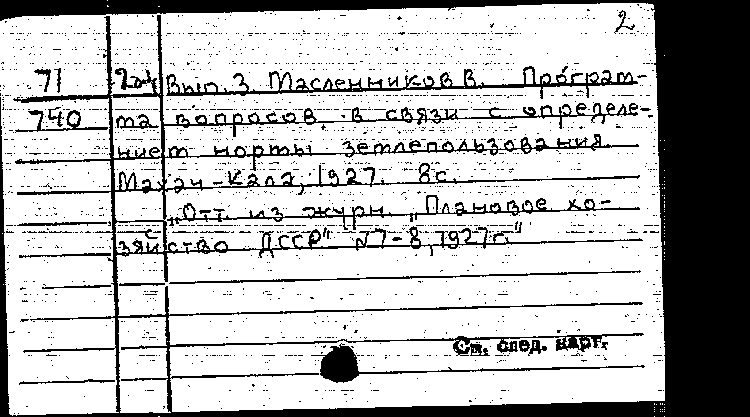 2
71 Вып. 3. Масленников В. Програм-
740 ма вопросов в связи с определе-
нием нормы землепользования.
Махач-Кала, 1927. 8 с.
"Отт. из журн. "Плановое хо-
зяйство ДССР" №7-8, 1927 г."
См. след. карт.